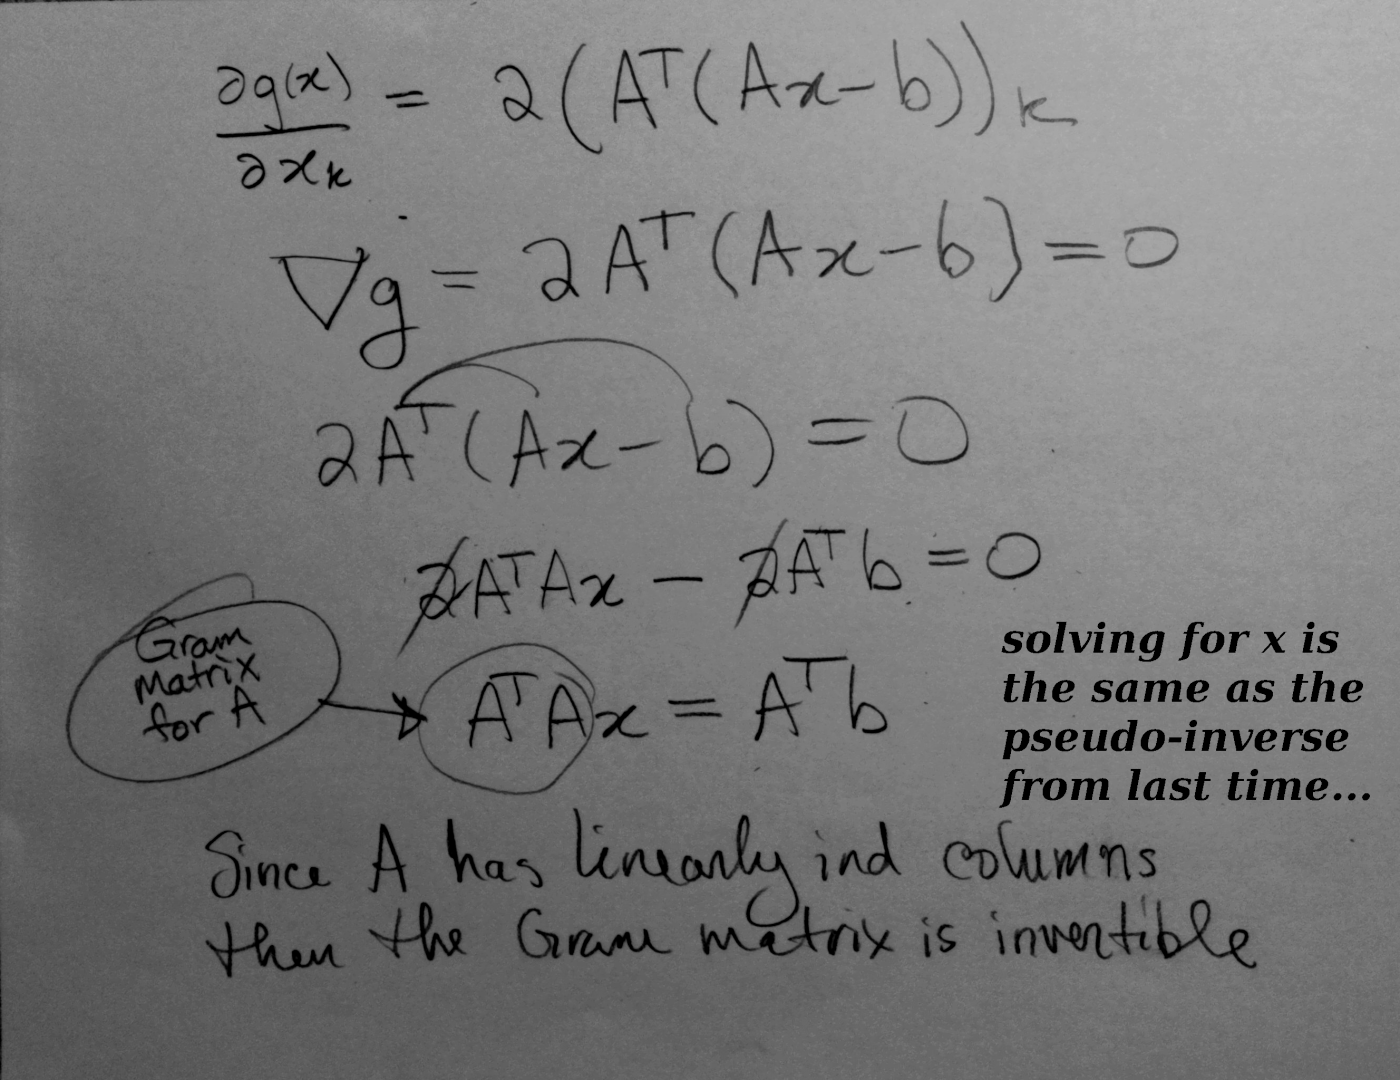 ∂g(x)/∂xₖ = 2(Aᵀ(Ax−b))ₖ
∇g = 2Aᵀ(Ax−b) = 0
2Aᵀ(Ax−b) = 0
2AᵀAx − 2Aᵀb = 0
Gram
Matrix
for A
AᵀAx = Aᵀb
solving for x is
the same as the
pseudo-inverse
from last time...
Since A has linearly ind columns
then the Gram matrix is invertible